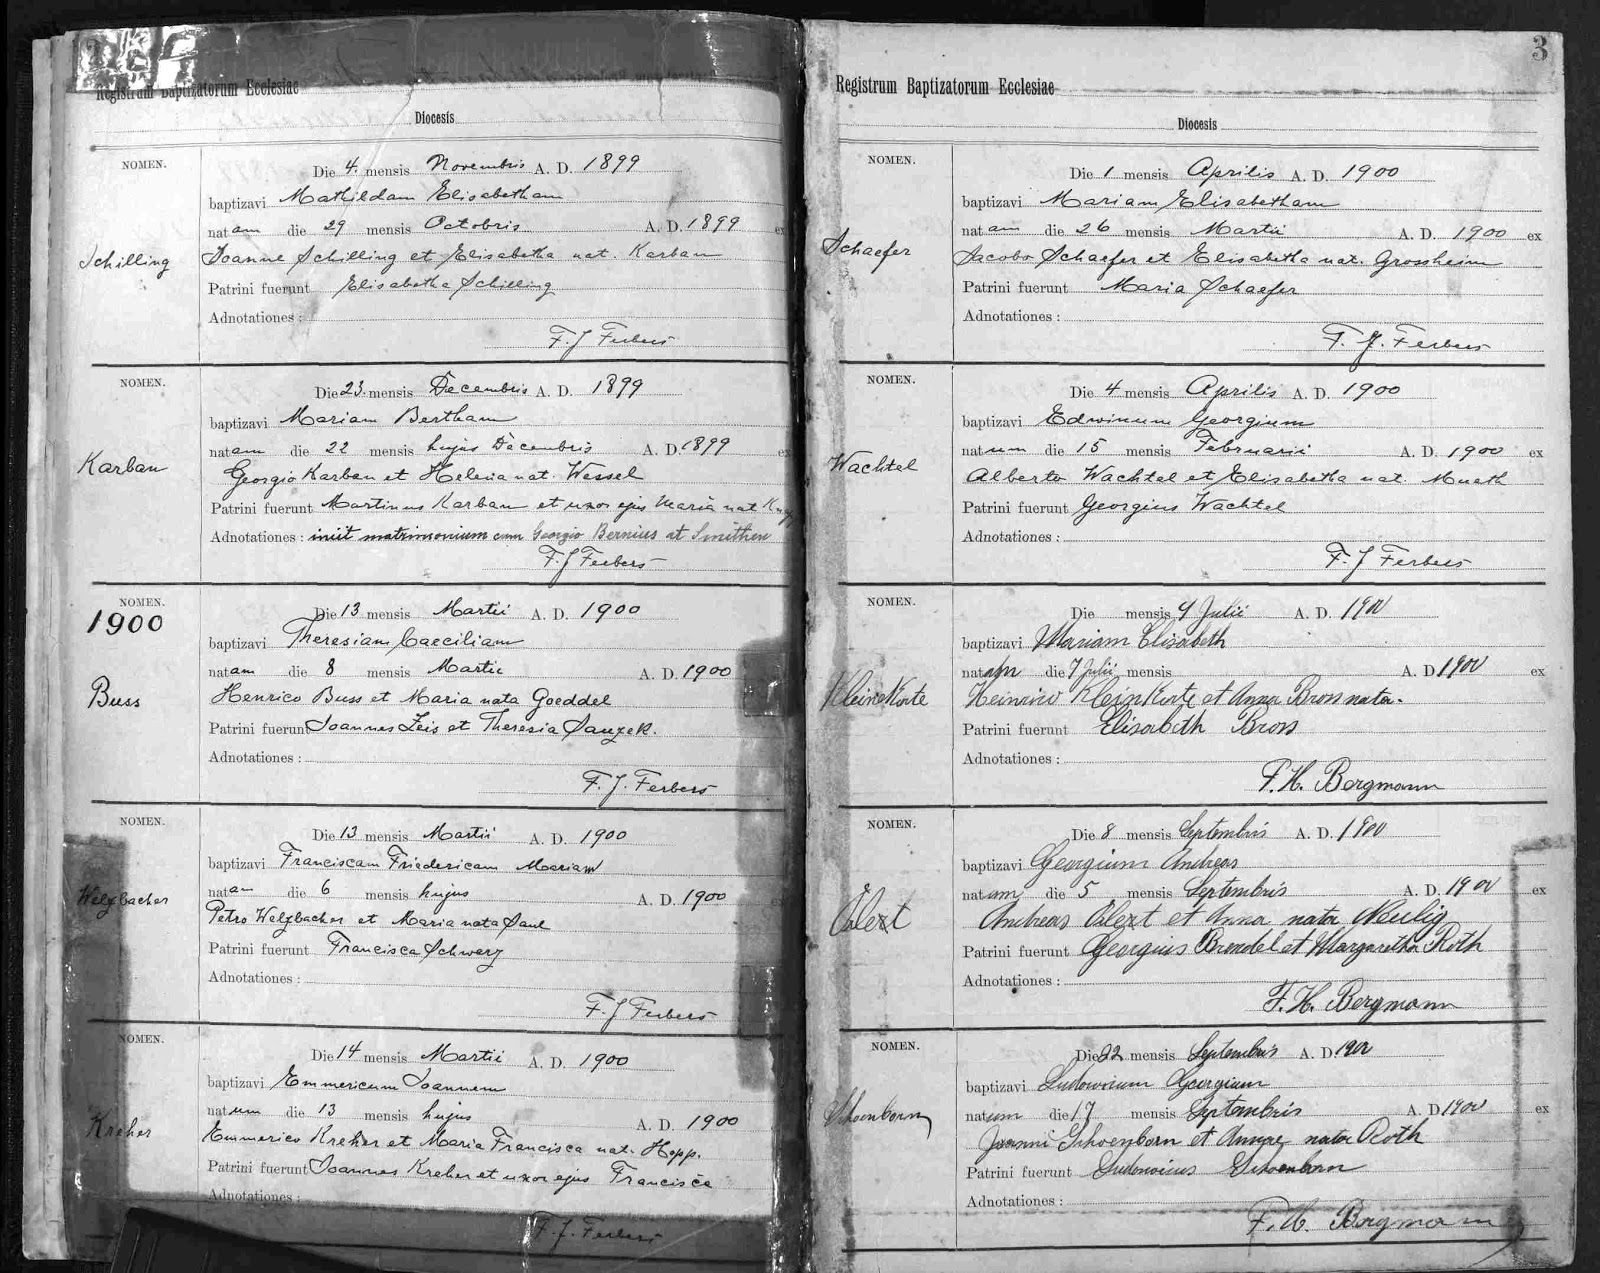 Registrum Baptizatorum Ecclesiae
Diocesis
NOMEN.
Die 4. mensis Novembris A. D. 1899
baptizavi Mathildam Elisabetham
natam die 29 mensis Octobris A. D. 1899 ex
Schilling
Joanne Schilling et Elisabetha nat. Karban
Patrini fuerunt Elisabetha Schilling
Adnotationes :
F. J Ferbers
NOMEN.
Die 23. mensis Decembris A. D. 1899
baptizavi Mariam Bertham
natam die 22 mensis hujus Decembris A. D. 1899 ex
Karban
Georgio Karban et Helena nat. Wessel
Patrini fuerunt Martinus Karban et uxor ejus Maria nat
Adnotationes : iniit matrimonium cum Georgio Bernius at Smithton
F. J Ferbers
NOMEN.
1900
Die 13 mensis Martii A. D. 1900
baptizavi Theresiam Caeciliam
natam die 8 mensis Martii A. D. 1900
Buss
Henrico Buss et Maria nata Goeddel
Patrini fuerunt Joannes Zeis et Theresia
Adnotationes :
F. J. Ferbers
NOMEN.
Die 13 mensis Martii A. D. 1900
baptizavi Franciscam Friedericam Mariam
natam die 6 mensis hujus A. D. 1900
Welzbacher
Petro Welzbacher et Maria nata Saul
Patrini fuerunt Francisca Schwerz
Adnotationes :
F. J Ferbers
NOMEN.
Die 14 mensis Martii A. D. 1900
baptizavi Emmericum Joannem
natum die 13 mensis hujus A. D. 1900
Kreher
Emmerico Kreher et Maria Francisca nat. Hepp.
Patrini fuerunt Joannes Kreher et uxor ejus Francisca
Adnotationes :
F. J. Ferbers
3
Registrum Baptizatorum Ecclesiae
Diocesis
NOMEN.
Die 1 mensis Aprilis A. D. 1900
baptizavi Mariam Elisabetham
natam die 26 mensis Martii A. D. 1900 ex
Schaefer
Jacobo Schaefer et Elisabetha nat. Grossheim
Patrini fuerunt Maria Schaefer
Adnotationes :
F. J. Ferbers
NOMEN.
Die 4 mensis Aprilis A. D. 1900
baptizavi Edwinum Georgium
natum die 15 mensis Februarii A. D. 1900 ex
Wachtel
Alberto Wachtel et Elisabetha nat. Mueth
Patrini fuerunt Georgius Wachtel
Adnotationes :
F. J Ferbers
NOMEN.
Die mensis 9 Julii A. D. 1900
baptizavi Mariam Elisabeth
natam die 7 Julii mensis A. D 1900 ex
KleineKorte
Heinrico KleinKorte et Anna Bross nata.
Patrini fuerunt Elisabeth Bross
Adnotationes :
F. H. Bergmann
NOMEN.
Die 8 mensis Septembris A. D. 1900
baptizavi Georgium Andreas
natam die 5 mensis Septembris A. D. 1900 ex
Andreas et Anna nata Neulig
Patrini fuerunt Georgius Brendel et Margaretha Roth
Adnotationes :
F. H. Bergmann
NOMEN.
Die 22 mensis Septembris A. D 1900
baptizavi Ludovicum Georgium
natum die 17 mensis Septembris A. D 1900 ex
Schoenborn
Joanni Schoenborn et Annae nata Roth
Patrini fuerunt Ludovicus Schoenborn
Adnotationes :
F. H. Bergmann